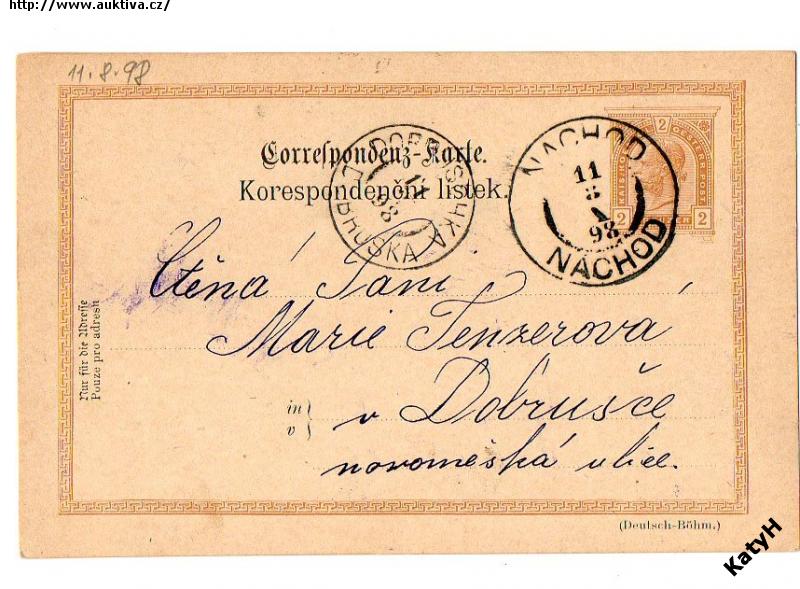 http://www.auktiva.cz/
11.8.98
Correspondenz-Karte.
Korespondenční lístek.
2 KAIS. KÖN. OESTERR. POST
2 2
NÁCHOD
11
8
98
NÁCHOD
DOBRUSCHKA
11
98
DOBRUŠKA
Ctěná Paní
Marie Tenzerová
in
v
v Dobrušce
novoměská ulice.
Nur für die Adresse
Pouze pro adresu
(Deutsch-Böhm.)
KatyH